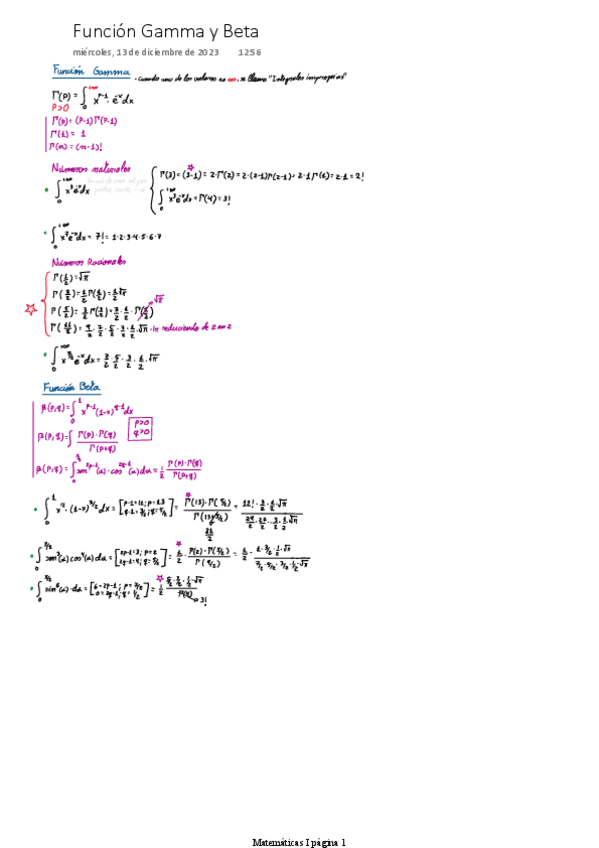 Función Gamma y Beta
miércoles, 13 de diciembre de 2023 12:56
Función Gamma · cuando uno de los valores es ∞, se llama "Integrales impropias"
Γ(p) = ∫₀^{+∞} x^{p-1} · e^{-x} dx
p>0
Γ(p) = (p-1) Γ(p-1)
Γ(1) = 1
Γ(n) = (n-1)!
Números naturales
Γ(3) = (3-1) = 2 · Γ(2) = 2 · (2-1) Γ(2-1) = 2 · 1 Γ(1) = 2 · 1 = 2!
∫₀^{+∞} x³ e^{-x} dx
∫₀^{+∞} x³ e^{-x} dx = Γ(4) = 3!
∫₀^{+∞} x⁷ e^{-x} dx = 7! = 1·2·3·4·5·6·7
Números Racionales
Γ(1/2) = √π
Γ(3/2) = 1/2 Γ(1/2) = 1/2 √π
Γ(5/2) = 3/2 Γ(3/2) = 3/2 · 1/2 · Γ(1/2) √π
Γ(11/2) = 9/2 · 7/2 · 5/2 · 3/2 · 1/2 · √π → ir reduciendo de 2 en 2
∫₀^{+∞} x^{7/2} e^{-x} dx = 7/2 · 5/2 · 3/2 · 1/2 · √π
Función Beta
β(p,q) = ∫₀¹ x^{p-1} (1-x)^{q-1} dx
β(p,q) = ∫ Γ(p) · Γ(q) / Γ(p+q) p>0 q>0
β(p,q) = ∫₀^{π/2} sen^{2p-1}(α) · cos^{2q-1}(α) dα = 1/2 Γ(p) · Γ(q) / Γ(p+q)
∫₀¹ x¹² · (1-x)^{3/2} dx = [p-1=12; p=13 q-1=3/2; q=5/2] = Γ(13) · Γ(5/2) / Γ(13+5/2) = 12! · 3/2 · 1/2 · √π / 29/2 · 27/2 ... 3/2 · 1/2 √π
31/2
∫₀^{π/2} sen³(α) cos⁴(α) dα = [2p-1=3; p=2 2q-1=4; q=5/2] = 1/2 · Γ(2) · Γ(5/2) / Γ(9/2) = 1/2 · 1 · 3/2 · 1/2 · √π / 7/2 · 5/2 · 3/2 · 1/2 · √π
∫₀^{π/2} sin⁶(α) · dα = [6=2p-1; p=7/2 0=2q-1; q=1/2] = 1/2 5/2 · 3/2 · 1/2 · √π · √π / Γ(4) → 3!
Matemáticas I página 1